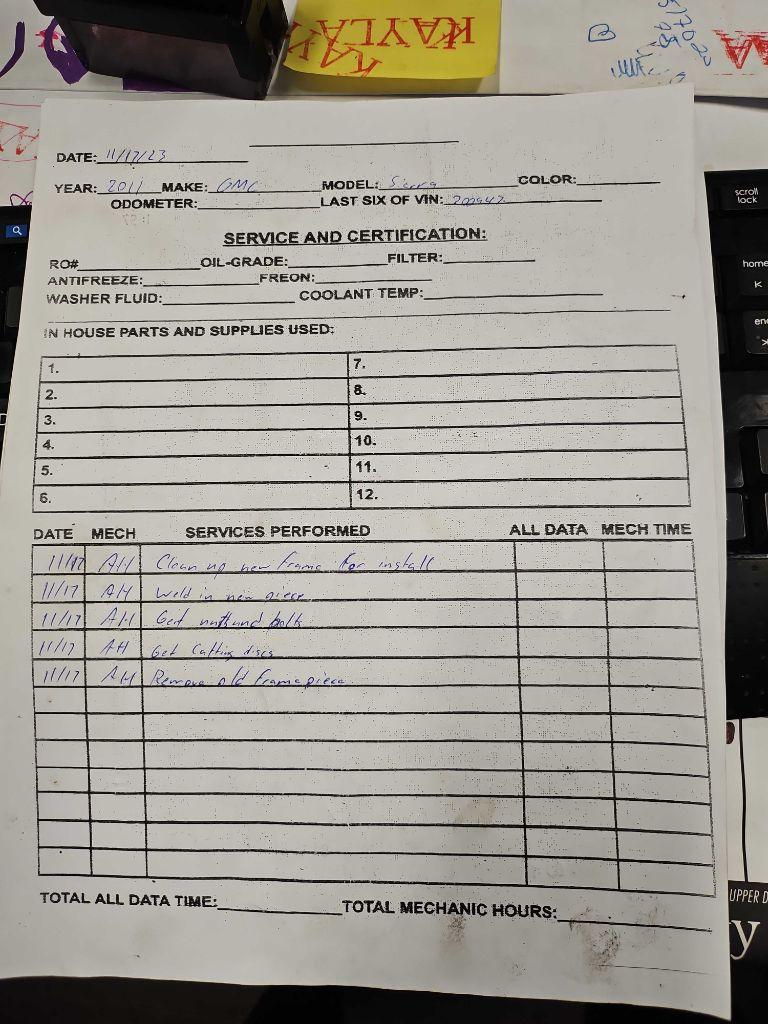 KAYLA
DATE: 11/17/23
YEAR: 2011 MAKE: GMC MODEL: Sierra COLOR:
ODOMETER: LAST SIX OF VIN:
SERVICE AND CERTIFICATION:
RO# OIL-GRADE: FILTER:
ANTIFREEZE: FREON:
WASHER FLUID: COOLANT TEMP:
IN HOUSE PARTS AND SUPPLIES USED:
1. 7.
2. 8.
3. 9.
4. 10.
5. 11.
6. 12.
DATE MECH SERVICES PERFORMED ALL DATA MECH TIME
11/17 AH Clean up new frame for install
11/17 AH Weld in new piece
11/17 AH Get nuts and bolts
11/17 AH Get Cutting discs
11/17 AH Remove old frame piece
TOTAL ALL DATA TIME: TOTAL MECHANIC HOURS:
scroll
lock
home
UPPER D
y